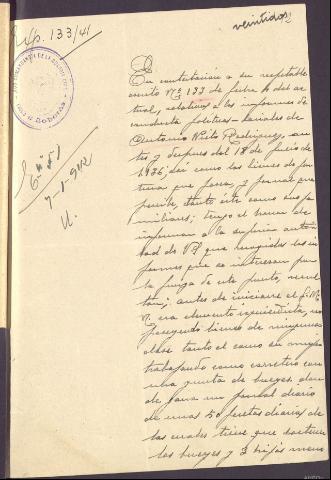 veintidos
Exp. 133/41
En contestación a su respetable
escrito Nº 133 de fecha del ac-
tual, relativo a los informes de
conducta politico-sociales de
Antonio Rodriguez, an-
tes y despues del 18 de Julio de
1936; asi como los bienes de for-
tuna que posea, y jornal que
percibe, tanto éste como sus fa-
miliares; tengo el honor de
informar a la superior autori-
dad de Vd que recogidos los in-
formes que se interesan por
la fuerza de este puesto, resul-
tan: antes de iniciarse el G. M.
N. era elemento izquierdista, no
poseyendo bienes de ninguna
clase tanto el como su mujer
trabajando como carretero con
una yunta de bueyes, don-
de gana un jornal diario
de unas 50 pesetas diarias de
las cuales tiene que sostener
los bueyes y 3 hijos meno